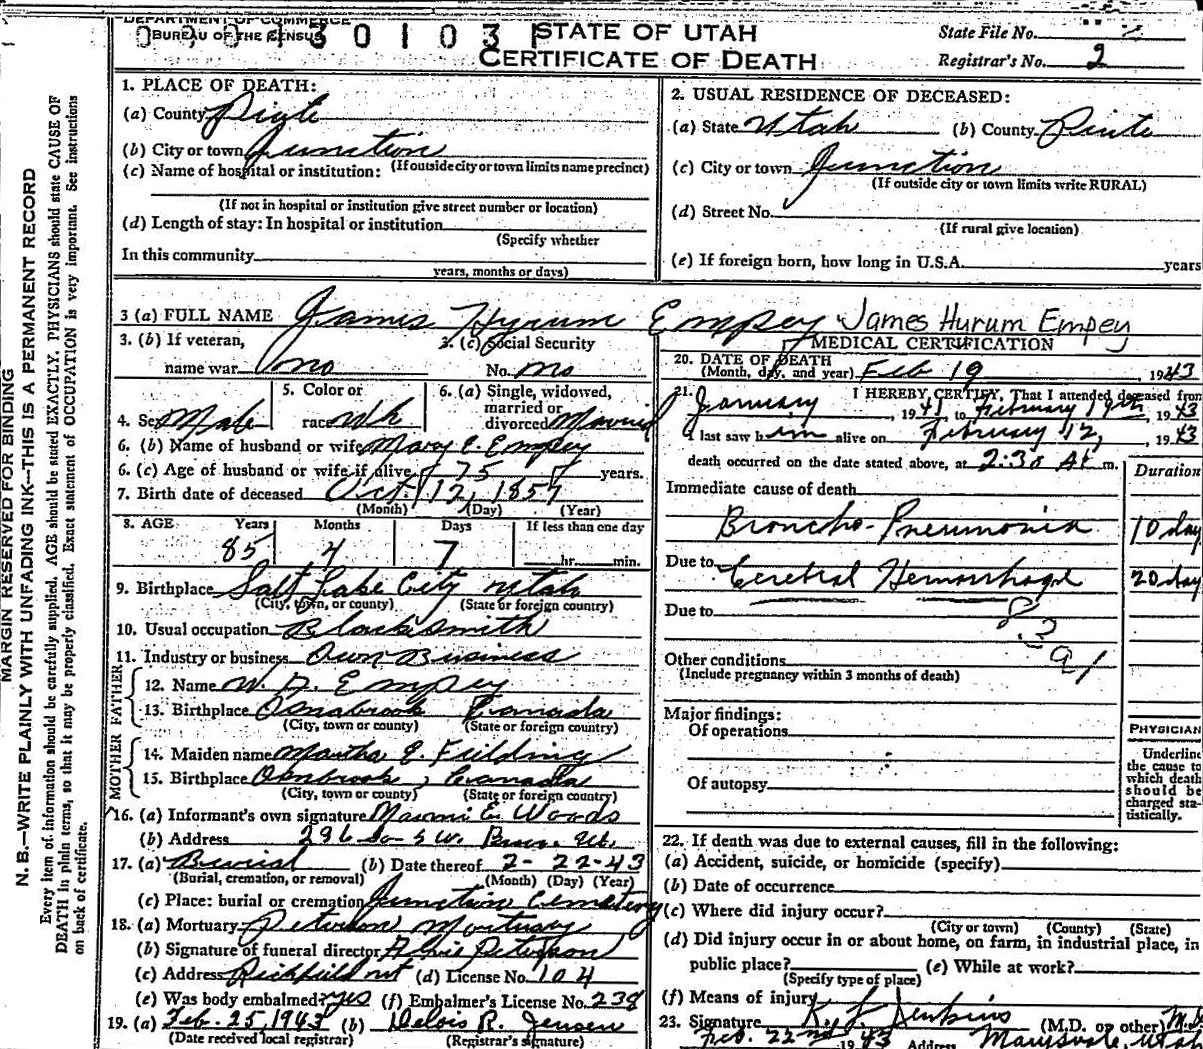 DEPARTMENT OF COMMERCE
BUREAU OF THE CENSUS
STATE OF UTAH
CERTIFICATE OF DEATH
State File No. 2
Registrar's No. 2
MARGIN RESERVED FOR BINDING
N. B.—WRITE PLAINLY WITH UNFADING INK—THIS IS A PERMANENT RECORD
Every item of information should be carefully supplied. AGE should be stated EXACTLY. PHYSICIANS should state CAUSE OF
DEATH in plain terms, so that it may be properly classified. Exact statement of OCCUPATION is very important. See instructions
on back of certificate.
1. PLACE OF DEATH:
(a) County Piute
(b) City or town Junction
(If outside city or town limits name precinct)
(c) Name of hospital or institution:
(If not in hospital or institution give street number or location)
(d) Length of stay: In hospital or institution
(Specify whether
In this community
years, months or days)
2. USUAL RESIDENCE OF DECEASED:
(a) State Utah (b) County Piute
(c) City or town Junction
(If outside city or town limits write RURAL)
(d) Street No.
(If rural give location)
(e) If foreign born, how long in U.S.A. years
3 (a) FULL NAME James Hyrum Empey James Hyrum Empey
3. (b) If veteran,
name war no
3. (c) Social Security
No. no
4. Sex Male
5. Color or
race Wh
6. (a) Single, widowed,
married or
divorced Married
6. (b) Name of husband or wife Mary E. Empey
6. (c) Age of husband or wife if alive 75 years.
7. Birth date of deceased Oct. 12, 1857
(Month) (Day) (Year)
8. AGE Years Months Days If less than one day
85 4 7 hr. min.
9. Birthplace Salt Lake City Utah
(City, town, or county) (State or foreign country)
10. Usual occupation Blacksmith
11. Industry or business Own Business
FATHER
12. Name W. A. Empey
13. Birthplace Osnabrook Canada
(City, town or county) (State or foreign country)
MOTHER
14. Maiden name Martha E. Fielding
15. Birthplace Osnbrook, Canada
(City, town or county) (State or foreign country)
16. (a) Informant's own signature E. Woods
(b) Address 296 So 5 W. Ut.
17. (a) Burial (b) Date thereof 2-22-43
(Burial, cremation, or removal) (Month) (Day) (Year)
(c) Place: burial or cremation Junction Cemetery
18. (a) Mortuary Peterson Mortuary
(b) Signature of funeral director Peterson
(c) Address Richfield Ut (d) License No. 104
(e) Was body embalmed? yes (f) Embalmer's License No. 238
19. (a) Feb. 25, 1943 (b) Delois R. Jensen
(Date received local registrar) (Registrar's signature)
MEDICAL CERTIFICATION
20. DATE OF DEATH
(Month, day, and year) Feb 19, 1943
21. I HEREBY CERTIFY, That I attended deceased from
January, 1941 to February 19th, 1943
I last saw him alive on February 12, 1943
death occurred on the date stated above, at 2:30 A. m.
Duration
Immediate cause of death
Broncho-Pneumonia 10 day
Due to Cerebral Hemorrhage 20 day
Due to
Other conditions
(Include pregnancy within 3 months of death)
Major findings:
Of operations
Of autopsy
PHYSICIAN
Underline
the cause to
which death
should be
charged sta-
tistically.
22. If death was due to external causes, fill in the following:
(a) Accident, suicide, or homicide (specify)
(b) Date of occurrence
(c) Where did injury occur?
(City or town) (County) (State)
(d) Did injury occur in or about home, on farm, in industrial place, in
public place? (e) While at work?
(Specify type of place)
(f) Means of injury
23. Signature Jenkins (M.D. or other) M.D.
Feb. 22nd 1943 Address Marysvale, Utah